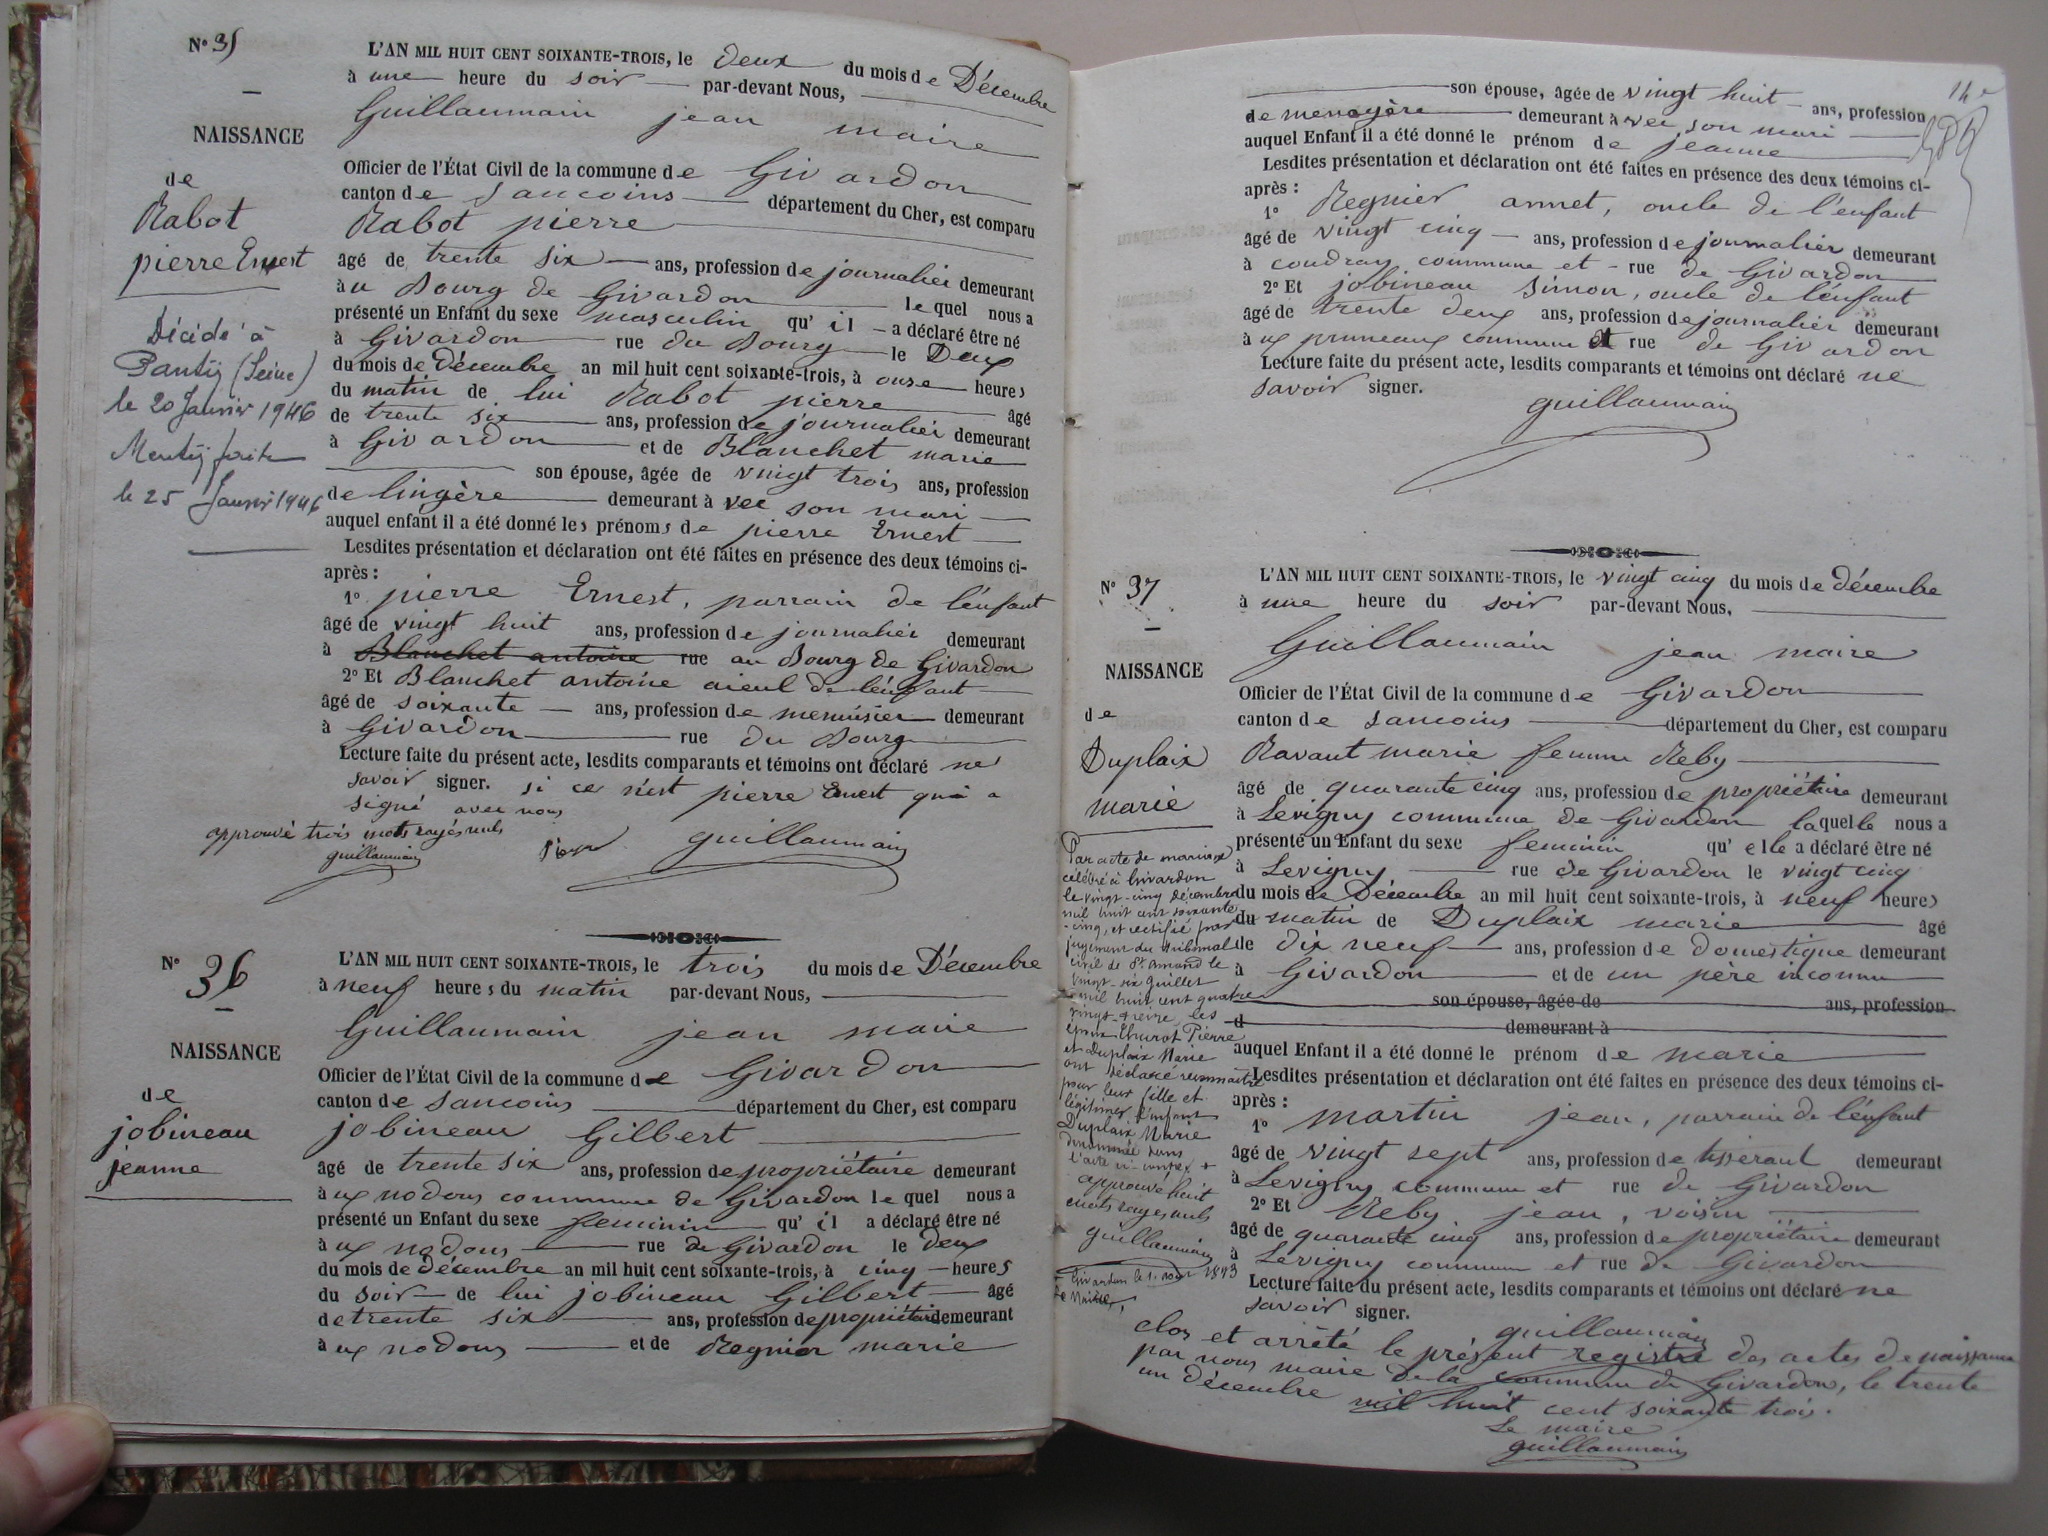 N° 35
NAISSANCE
de
Rabot
pierre Ernest
Décédé à
Pantin (Seine)
le 20 Janvier 1946
Mention faite
le 25 Janvier 1946
L'AN MIL HUIT CENT SOIXANTE-TROIS, le deux du mois de Décembre
à une heure du soir par-devant Nous,
Guillaumain jean maire
Officier de l'État Civil de la commune de Givardon
canton de Sancoins département du Cher, est comparu
Rabot pierre
âgé de trente six ans, profession de journalier demeurant
au Bourg de Givardon le quel nous a
présenté un Enfant du sexe masculin qu'il a déclaré être né
à Givardon rue du Bourg le Deux
du mois de Décembre an mil huit cent soixante-trois, à onse heures
du matin de lui Rabot pierre âgé
de trente six ans, profession de journalier demeurant
à Givardon et de Blanchet marie
son épouse, âgée de vingt trois ans, profession
de lingère demeurant avec son mari
auquel enfant il a été donné les prénoms de pierre Ernest
Lesdites présentation et déclaration ont été faites en présence des deux témoins ci-
après :
1° pierre Ernest, parrain de l'énfant
âgé de vingt huit ans, profession de journalier demeurant
à Blanchet antoine rue au Bourg de Givardon
2° Et Blanchet antoine aieul de l'énfant
âgé de soixante ans, profession de menuisier demeurant
à Givardon rue du Bourg
Lecture faite du présent acte, lesdits comparants et témoins ont déclaré ne
savoir signer. si ce n'est pierre Ernest qui a
signé avec nous
approuvé trois mots rayés nuls
guillaumain
guillaumain
N° 36
NAISSANCE
de
jobineau
jeanne
L'AN MIL HUIT CENT SOIXANTE-TROIS, le trois du mois de Décembre
à neuf heures du matin par-devant Nous,
Guillaumain jean maire
Officier de l'État Civil de la commune de Givardon
canton de Sancoins département du Cher, est comparu
jobineau Gilbert
âgé de trente six ans, profession de propriétaire demeurant
aux nodons commune de Givardon le quel nous a
présenté un Enfant du sexe feminin qu'il a déclaré être né
aux nodons rue de Givardon le deux
du mois de décembre an mil huit cent soixante-trois, à cinq heures
du soir de lui jobineau Gilbert âgé
de trente six ans, profession de propriétaire demeurant
aux nodons et de Regnier marie
14e
son épouse, âgée de vingt huit ans, profession
de menagère demeurant avec son mari
auquel Enfant il a été donné le prénom de jeanne
Lesdites présentation et déclaration ont été faites en présence des deux témoins ci-
après :
1° Regnier annet, oncle de l'enfant
âgé de vingt cinq ans, profession de journalier demeurant
à coudray commune et rue de Givardon
2° Et jobineau simon, oncle de l'énfant
âgé de trente deux ans, profession de journalier demeurant
aux pruneaux commune et rue de Givardon
Lecture faite du présent acte, lesdits comparants et témoins ont déclaré ne
savoir signer.
guillaumain
N° 37
NAISSANCE
de
Duplaix
marie
Par acte de mariage
célébré à Givardon
le vingt-cinq décembre
mil huit cent soixante
-cinq, et rectifié par
jugement du tribunal
civil de St Amand le
vingt-six Juillet
mil huit cent quatre
vingt-treize, les
époux Thurot Pierre
et Duplaix Marie
ont déclaré reconnaître
pour leur fille et
légitimer l'enfant
Duplaix Marie
dénommée dans
l'acte ci-contre
approuvé huit
mots rayés nuls
guillaumain
Givardon le 1. août 1893
Le Maire,
L'AN MIL HUIT CENT SOIXANTE-TROIS, le vingt cinq du mois de décembre
à une heure du soir par-devant Nous,
Guillaumain jean maire
Officier de l'État Civil de la commune de Givardon
canton de Sancoins département du Cher, est comparu
Ravaut marie femme Reby
âgé de quarante cinq ans, profession de propriétaire demeurant
à Levigny commune de Givardon laquelle nous a
présenté un Enfant du sexe feminin qu'elle a déclaré être né
à Levigny rue de Givardon le vingt cinq
du mois de Décembre an mil huit cent soixante-trois, à neuf heures
du matin de Duplaix marie âgé
de dix neuf ans, profession de domestique demeurant
à Givardon et de un père inconnu
son épouse, âgée de ans, profession
d demeurant à
auquel Enfant il a été donné le prénom de marie
Lesdites présentation et déclaration ont été faites en présence des deux témoins ci-
après :
1° martin jean, parrain de l'énfant
âgé de vingt sept ans, profession de tisserant demeurant
à Levigny commune et rue de Givardon
2° Et Reby jean, voisin
âgé de quarante cinq ans, profession de propriétaire demeurant
à Levigny commune et rue de Givardon
Lecture faite du présent acte, lesdits comparants et témoins ont déclaré ne
savoir signer.
guillaumain
clos et arrêté le présent registre des actes de naissance
par nous maire de la commune de Givardon, le trente
un décembre mil huit cent soixante trois.
Le maire
guillaumain